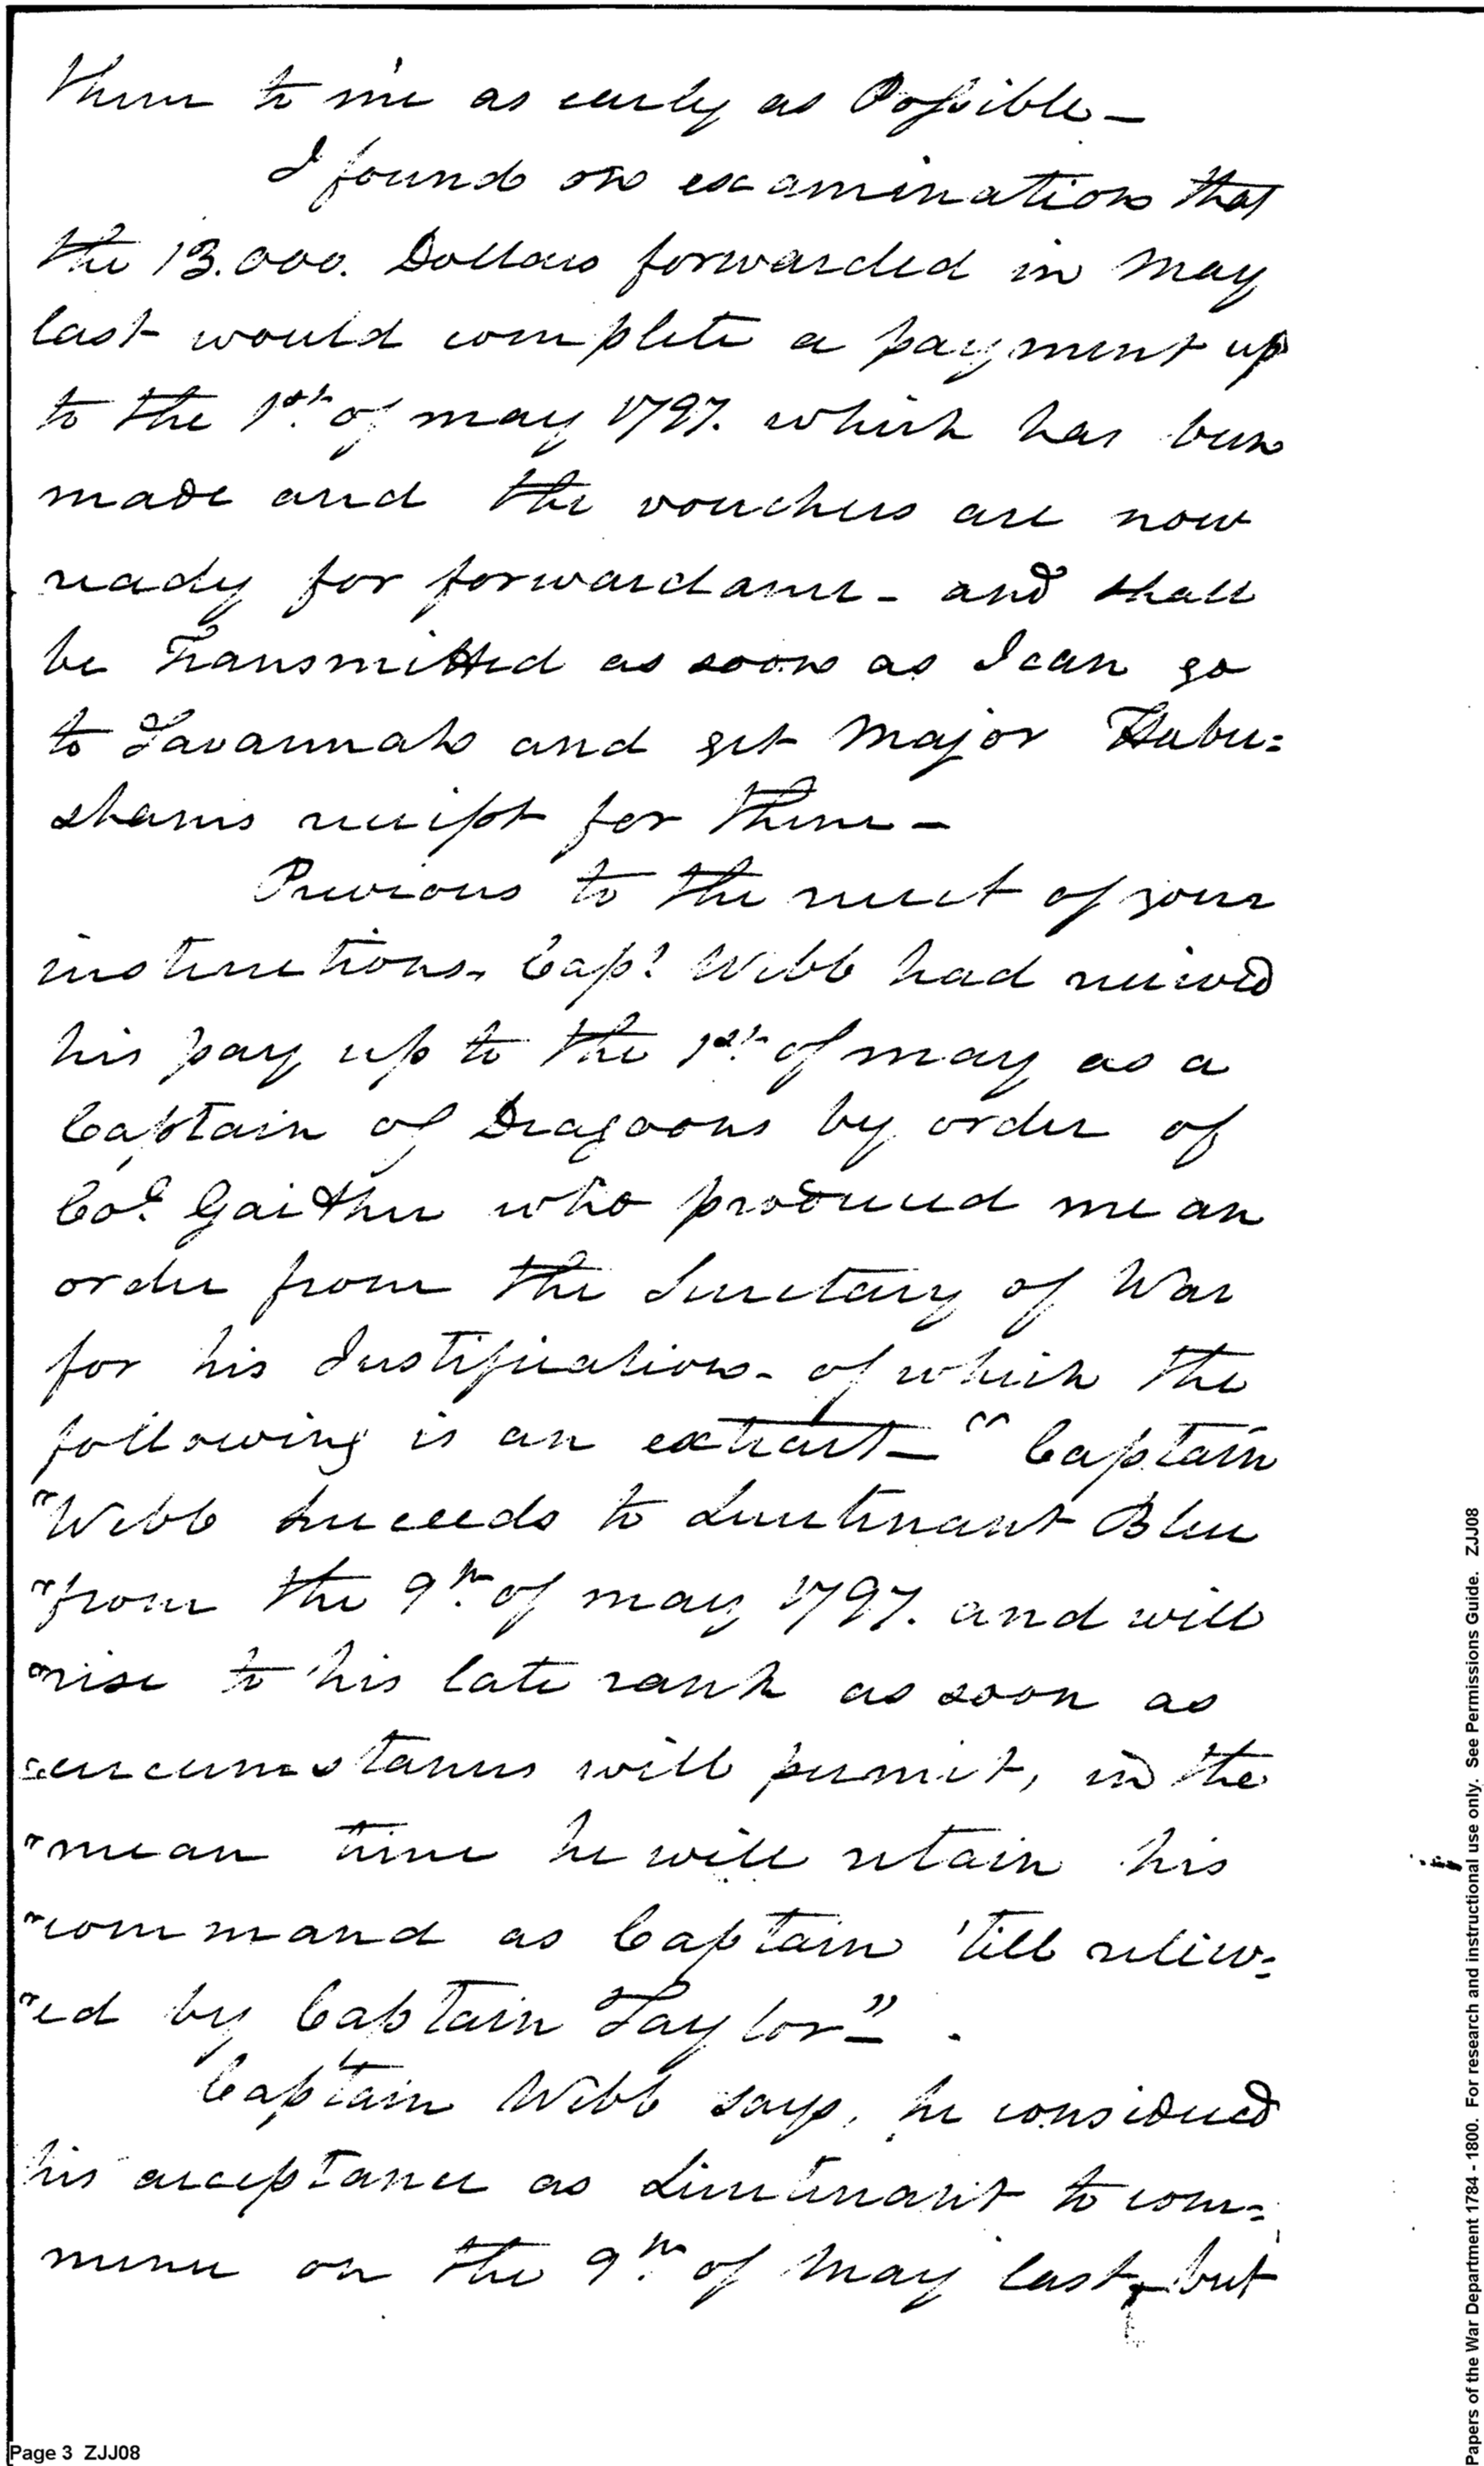 them to me as early as Possible—
I found on examination that
the 13.000. Dollars forwarded in May
last would complete a payment up
to the 1st. of may 1797. which has been
made and the vouchers are now
ready for forwardance - and shall
be Transmitted as soon as I can go
to Savannah and get Major Haber=
shams receipt for them—
Previous to the receet of your
instructions, Capt. Webb had received
his pay up to the 1st. of may as a
Captain of Dragoons by order of
Col. Gaither who produced me an
order from the Secretary of War
for his Justification - of which the
following is an extract— " Captain
"Webb succeeds to Lieutenant Blue
"from the 9th. of may 1797. and will
"rise to his late rank as soon as
"circumstances will permit, in the
"mean time he will retain his
"command as Captain 'till reliev=
"ed by Captain Taylor"— .
Captain Webb says, he considered
his acceptance as Lieutenant to com=
mence on the 9th. of May last, but
Page 3 ZJJ08
Papers of the War Department 1784 - 1800. For research and instructional use only. See Permissions Guide. ZJJ08